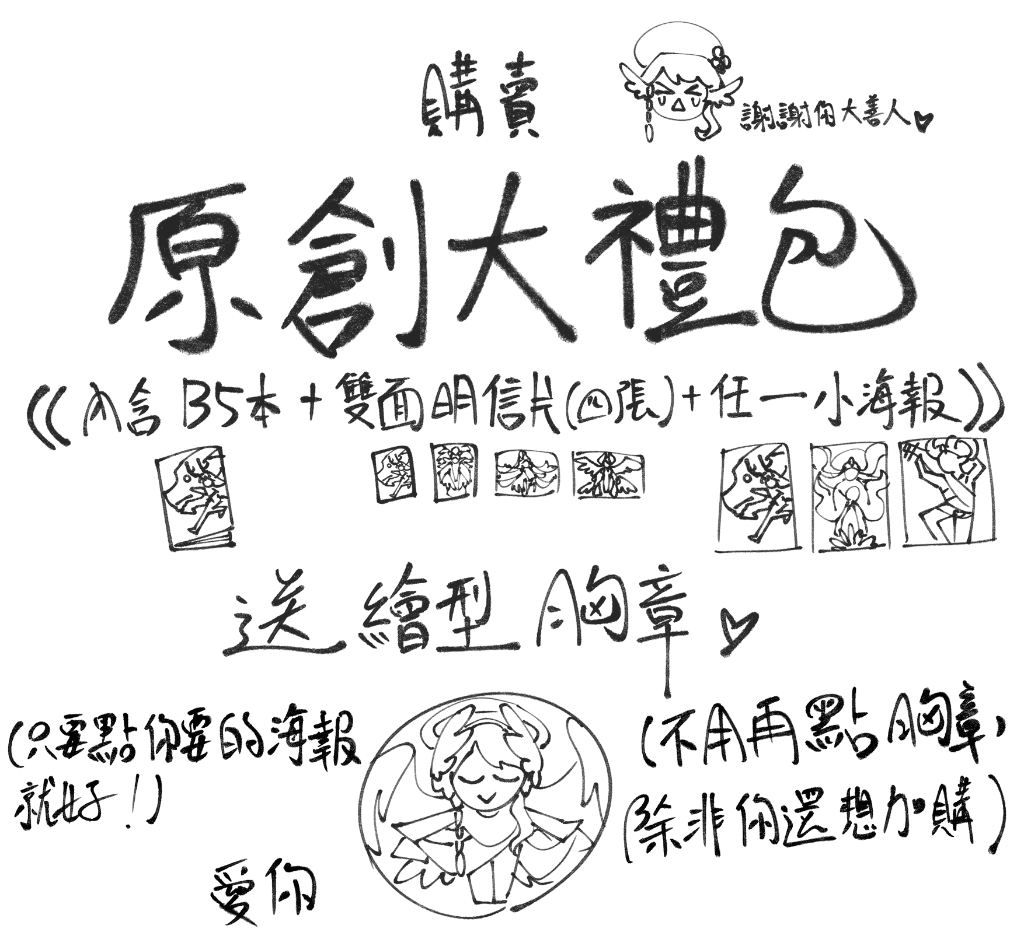 購賣
謝謝你大善人♥
原創大禮包
《內含B5本+雙面明信片(四張)+任一小海報》
送繪型胸章♥
(只要點你要的海報
就好!)
(不用再點胸章,
(除非你還想加購)
愛你